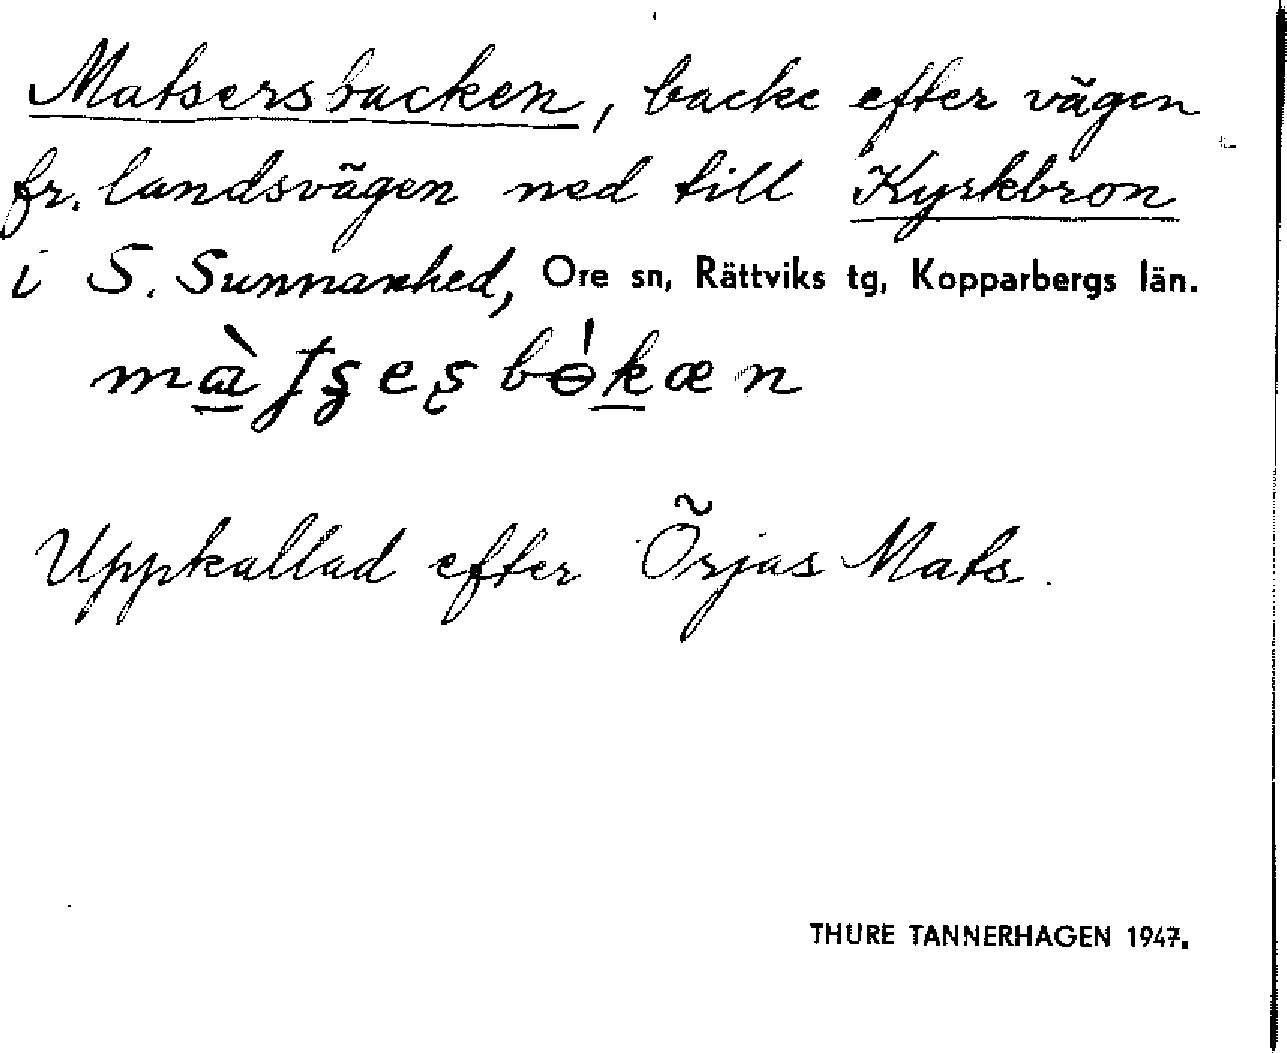 Matsersbacken, backe efter vägen
fr. landsvägen ned till Kyrkbron
i S. Sunnanhed, Ore sn, Rättviks tg, Kopparbergs län.
Uppkallad efter Örjas Mats.
THURE TANNERHAGEN 1947.